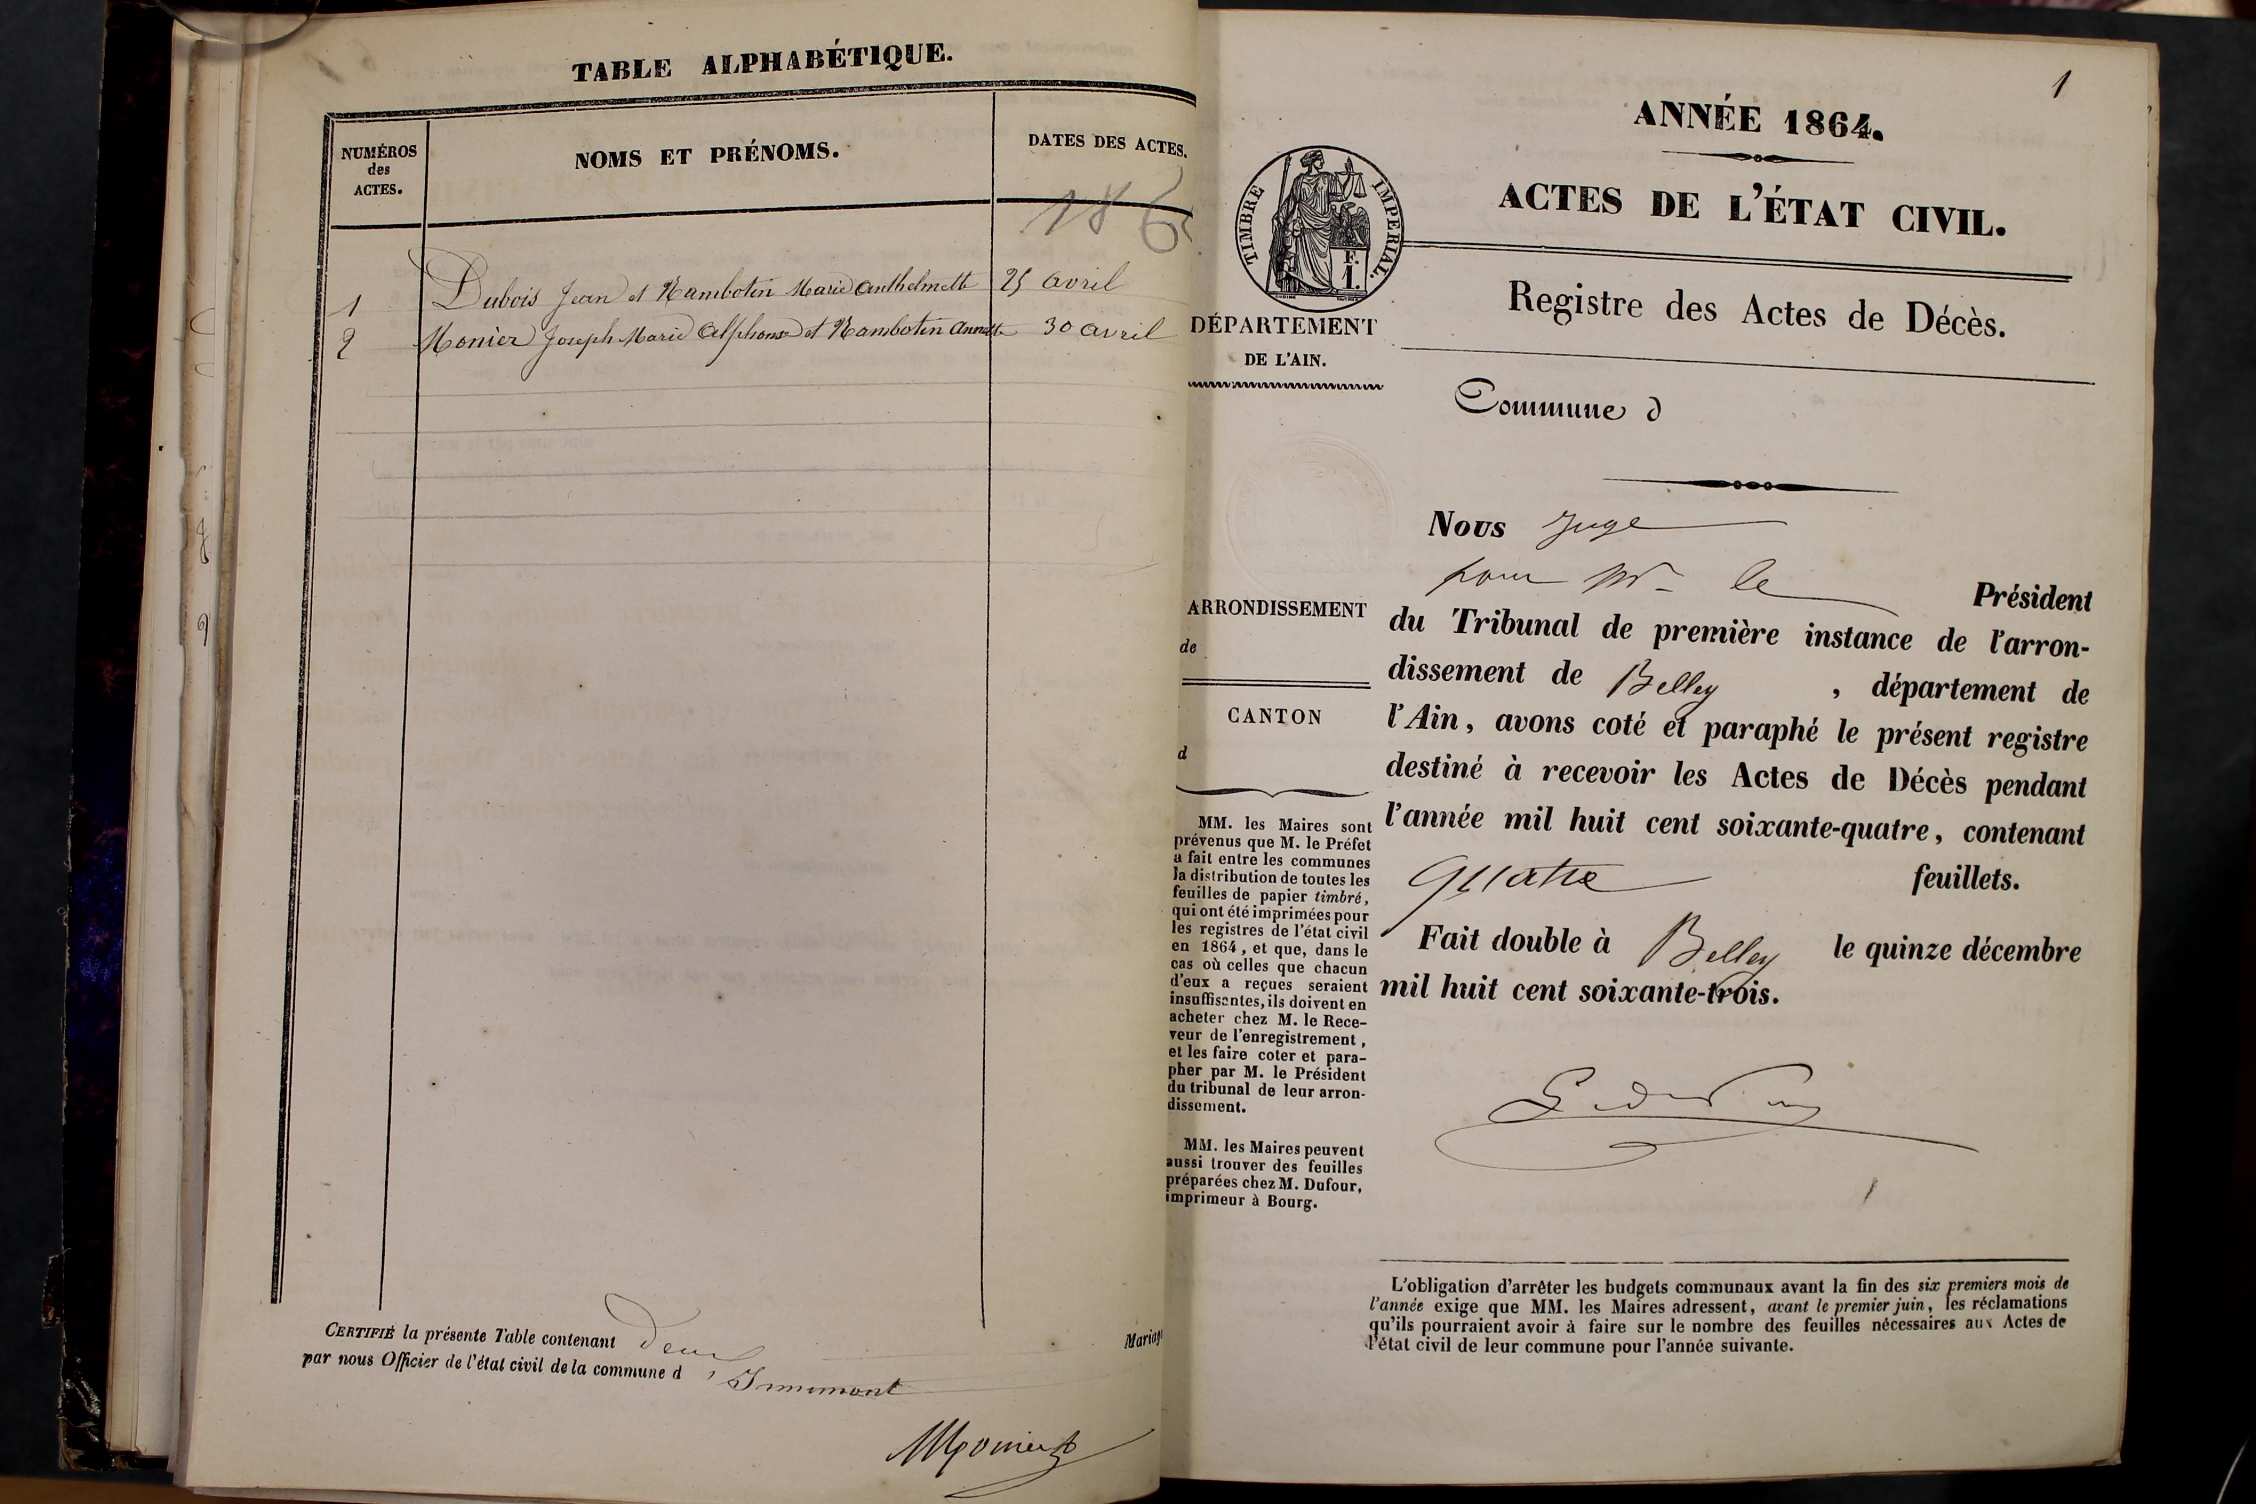 TABLE ALPHABÉTIQUE.
NUMÉROS
des
ACTES.
NOMS ET PRÉNOMS.
DATES DES ACTES.
186
1 Dubois Jean et Rambotin Marie Anthelmette 25 avril
2 Monier Joseph Marie Alphonse et Rambotin Annette 30 avril
CERTIFIÉ la présente Table contenant deux Mariag
par nous Officier de l'état civil de la commune d'Innimont
1
ANNÉE 1864.
ACTES DE L'ÉTAT CIVIL.
TIMBRE IMPERIAL.
F.
1.
Registre des Actes de Décès.
DÉPARTEMENT
DE L'AIN.
Commune d
Nous Juge
pour Mr le Président
du Tribunal de première instance de l'arron-
dissement de Belley, département de
l'Ain, avons coté et paraphé le présent registre
destiné à recevoir les Actes de Décès pendant
l'année mil huit cent soixante-quatre, contenant
quatre feuillets.
Fait double à Belley le quinze décembre
mil huit cent soixante-trois.
ARRONDISSEMENT
de
CANTON
d
MM. les Maires sont
prévenus que M. le Préfet
a fait entre les communes
la distribution de toutes les
feuilles de papier timbré,
qui ont été imprimées pour
les registres de l'état civil
en 1864, et que, dans le
cas où celles que chacun
d'eux a reçues seraient
insuffisantes, ils doivent en
acheter chez M. le Rece-
veur de l'enregistrement,
et les faire coter et para-
pher par M. le Président
du tribunal de leur arron-
dissement.
MM. les Maires peuvent
aussi trouver des feuilles
préparées chez M. Dufour,
imprimeur à Bourg.
L'obligation d'arrêter les budgets communaux avant la fin des six premiers mois de
l'année exige que MM. les Maires adressent, avant le premier juin, les réclamations
qu'ils pourraient avoir à faire sur le nombre des feuilles nécessaires aux Actes de
l'état civil de leur commune pour l'année suivante.